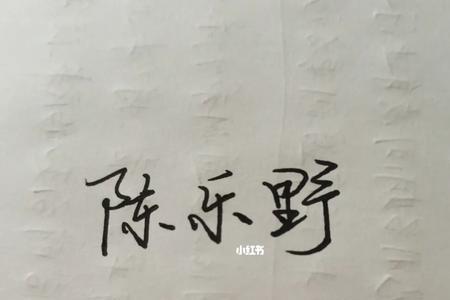 陈乐野
小红书